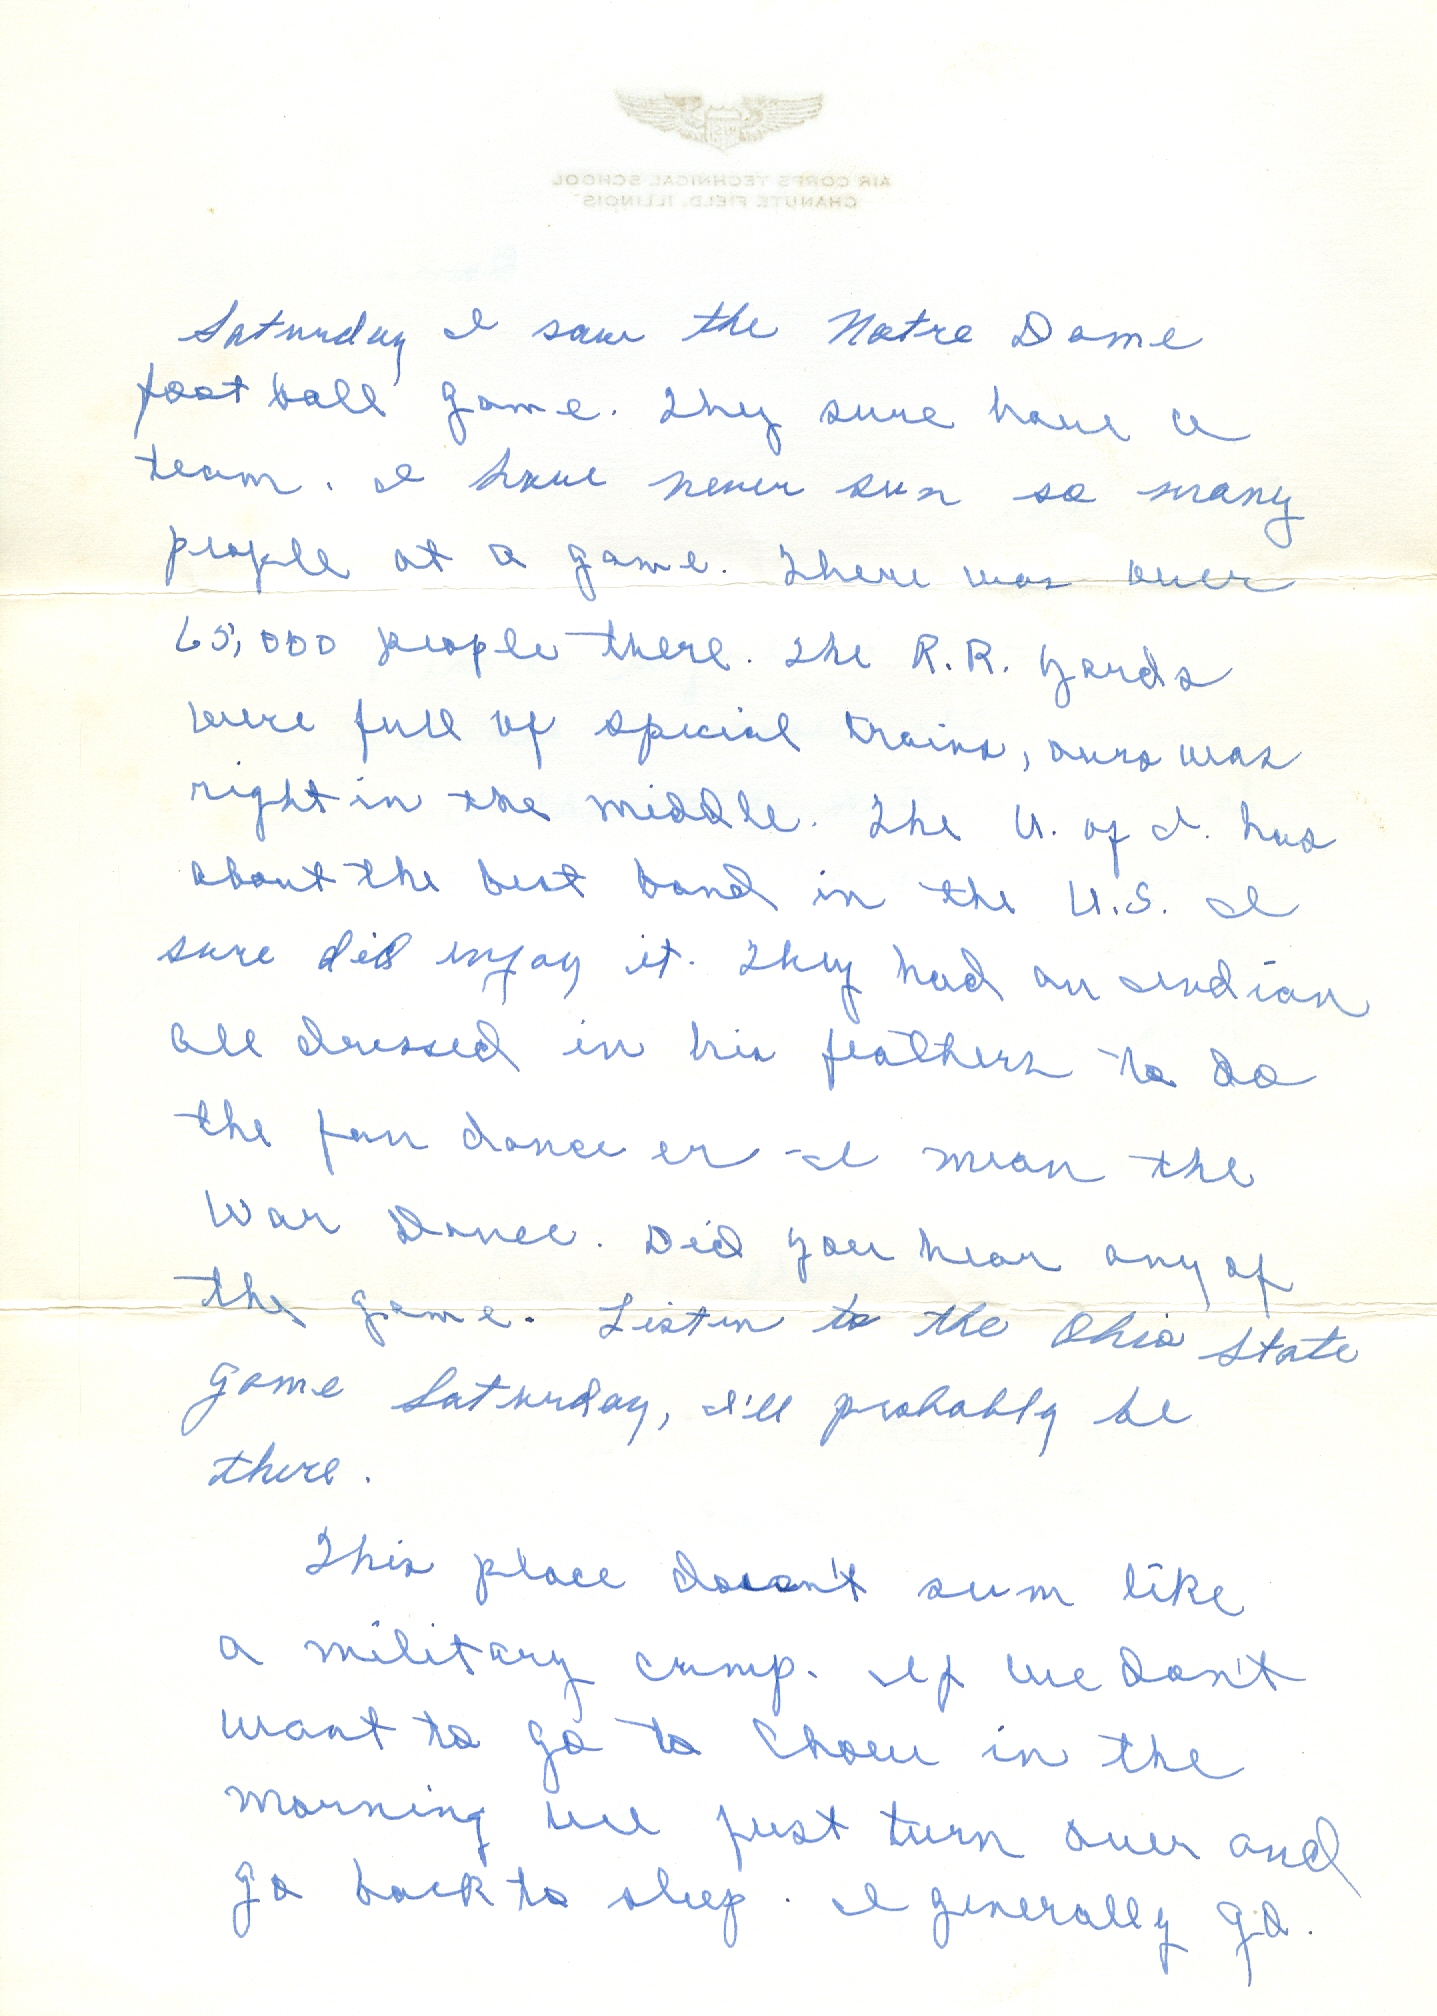 AIR CORPS TECHNICAL SCHOOL
CHANUTE FIELD, ILLINOIS
Saturday I saw the Notre Dame
football game. They sure have a
team. I have never seen so many
people at a game. There was over
65,000 people there. The R.R. yards
were full of special trains, ours was
right in the middle. The U. of I. has
about the best band in the U.S. I
sure did enjoy it. They had an Indian
all dressed in his feathers to do
the fan dance er - I mean the
War Dance. Did you hear any of
the game. Listen to the Ohio State
game Saturday, I'll probably be
there.
This place doesn't seem like
a military camp. If we don't
want to go to Chow in the
morning we just turn over and
go back to sleep. I generally go.